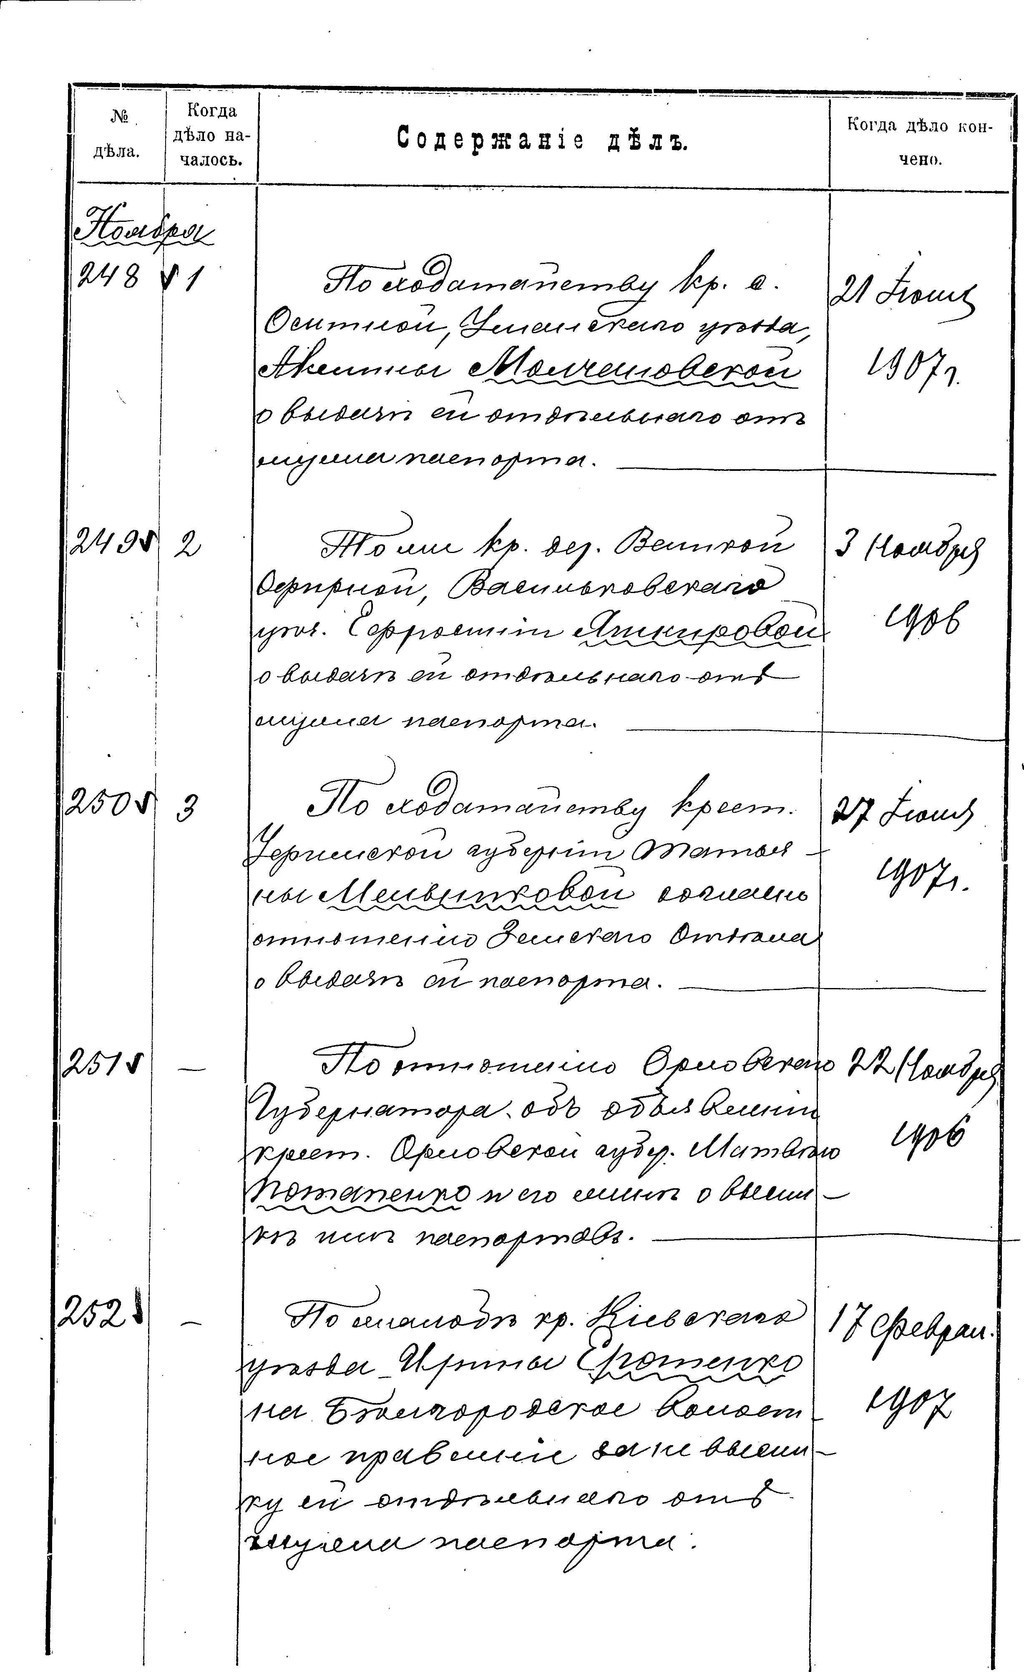 № дѣла.
Когда дѣло на-
чалось.
Содержаніе дѣлъ.
Когда дѣло кон-
чено.
Ноября
248 1 По ходатайству кр. с. 21 Іюня
Оситной, Уманскаго уѣзда,
Акелины Молчановской 1907 г.
о выдачѣ ей отдѣльнаго отъ
мужа паспорта.
249 2 То же кр. дер. Великой 3 Ноября
Офирной, Васильковскаго
уѣз. Ефросиніи Яшкировой 1906
о выдачѣ ей отдѣльнаго отъ
мужа паспорта.
250 3 По ходатайству крест. 27 Іюня
губерніи Татья-
ны Мельниковой согласно 1907 г.
отношенію Земскаго Отдѣла
о выдачѣ ей паспорта.
251 — По отношенію Орловскаго 22 Ноября
Губернатора объ объявленіи
крест. Орловской губер. Матвѣю 1906
Потапенко и его женѣ о высыл-
кѣ имъ паспортовъ.
252 — По жалобѣ кр. Кіевскаго 17 Феврал.
уѣзда Ирины Ерошенко
на Бѣлгородское волост- 1907
ное правленіе за не высыл-
ку ей отдѣльнаго отъ
мужа паспорта.